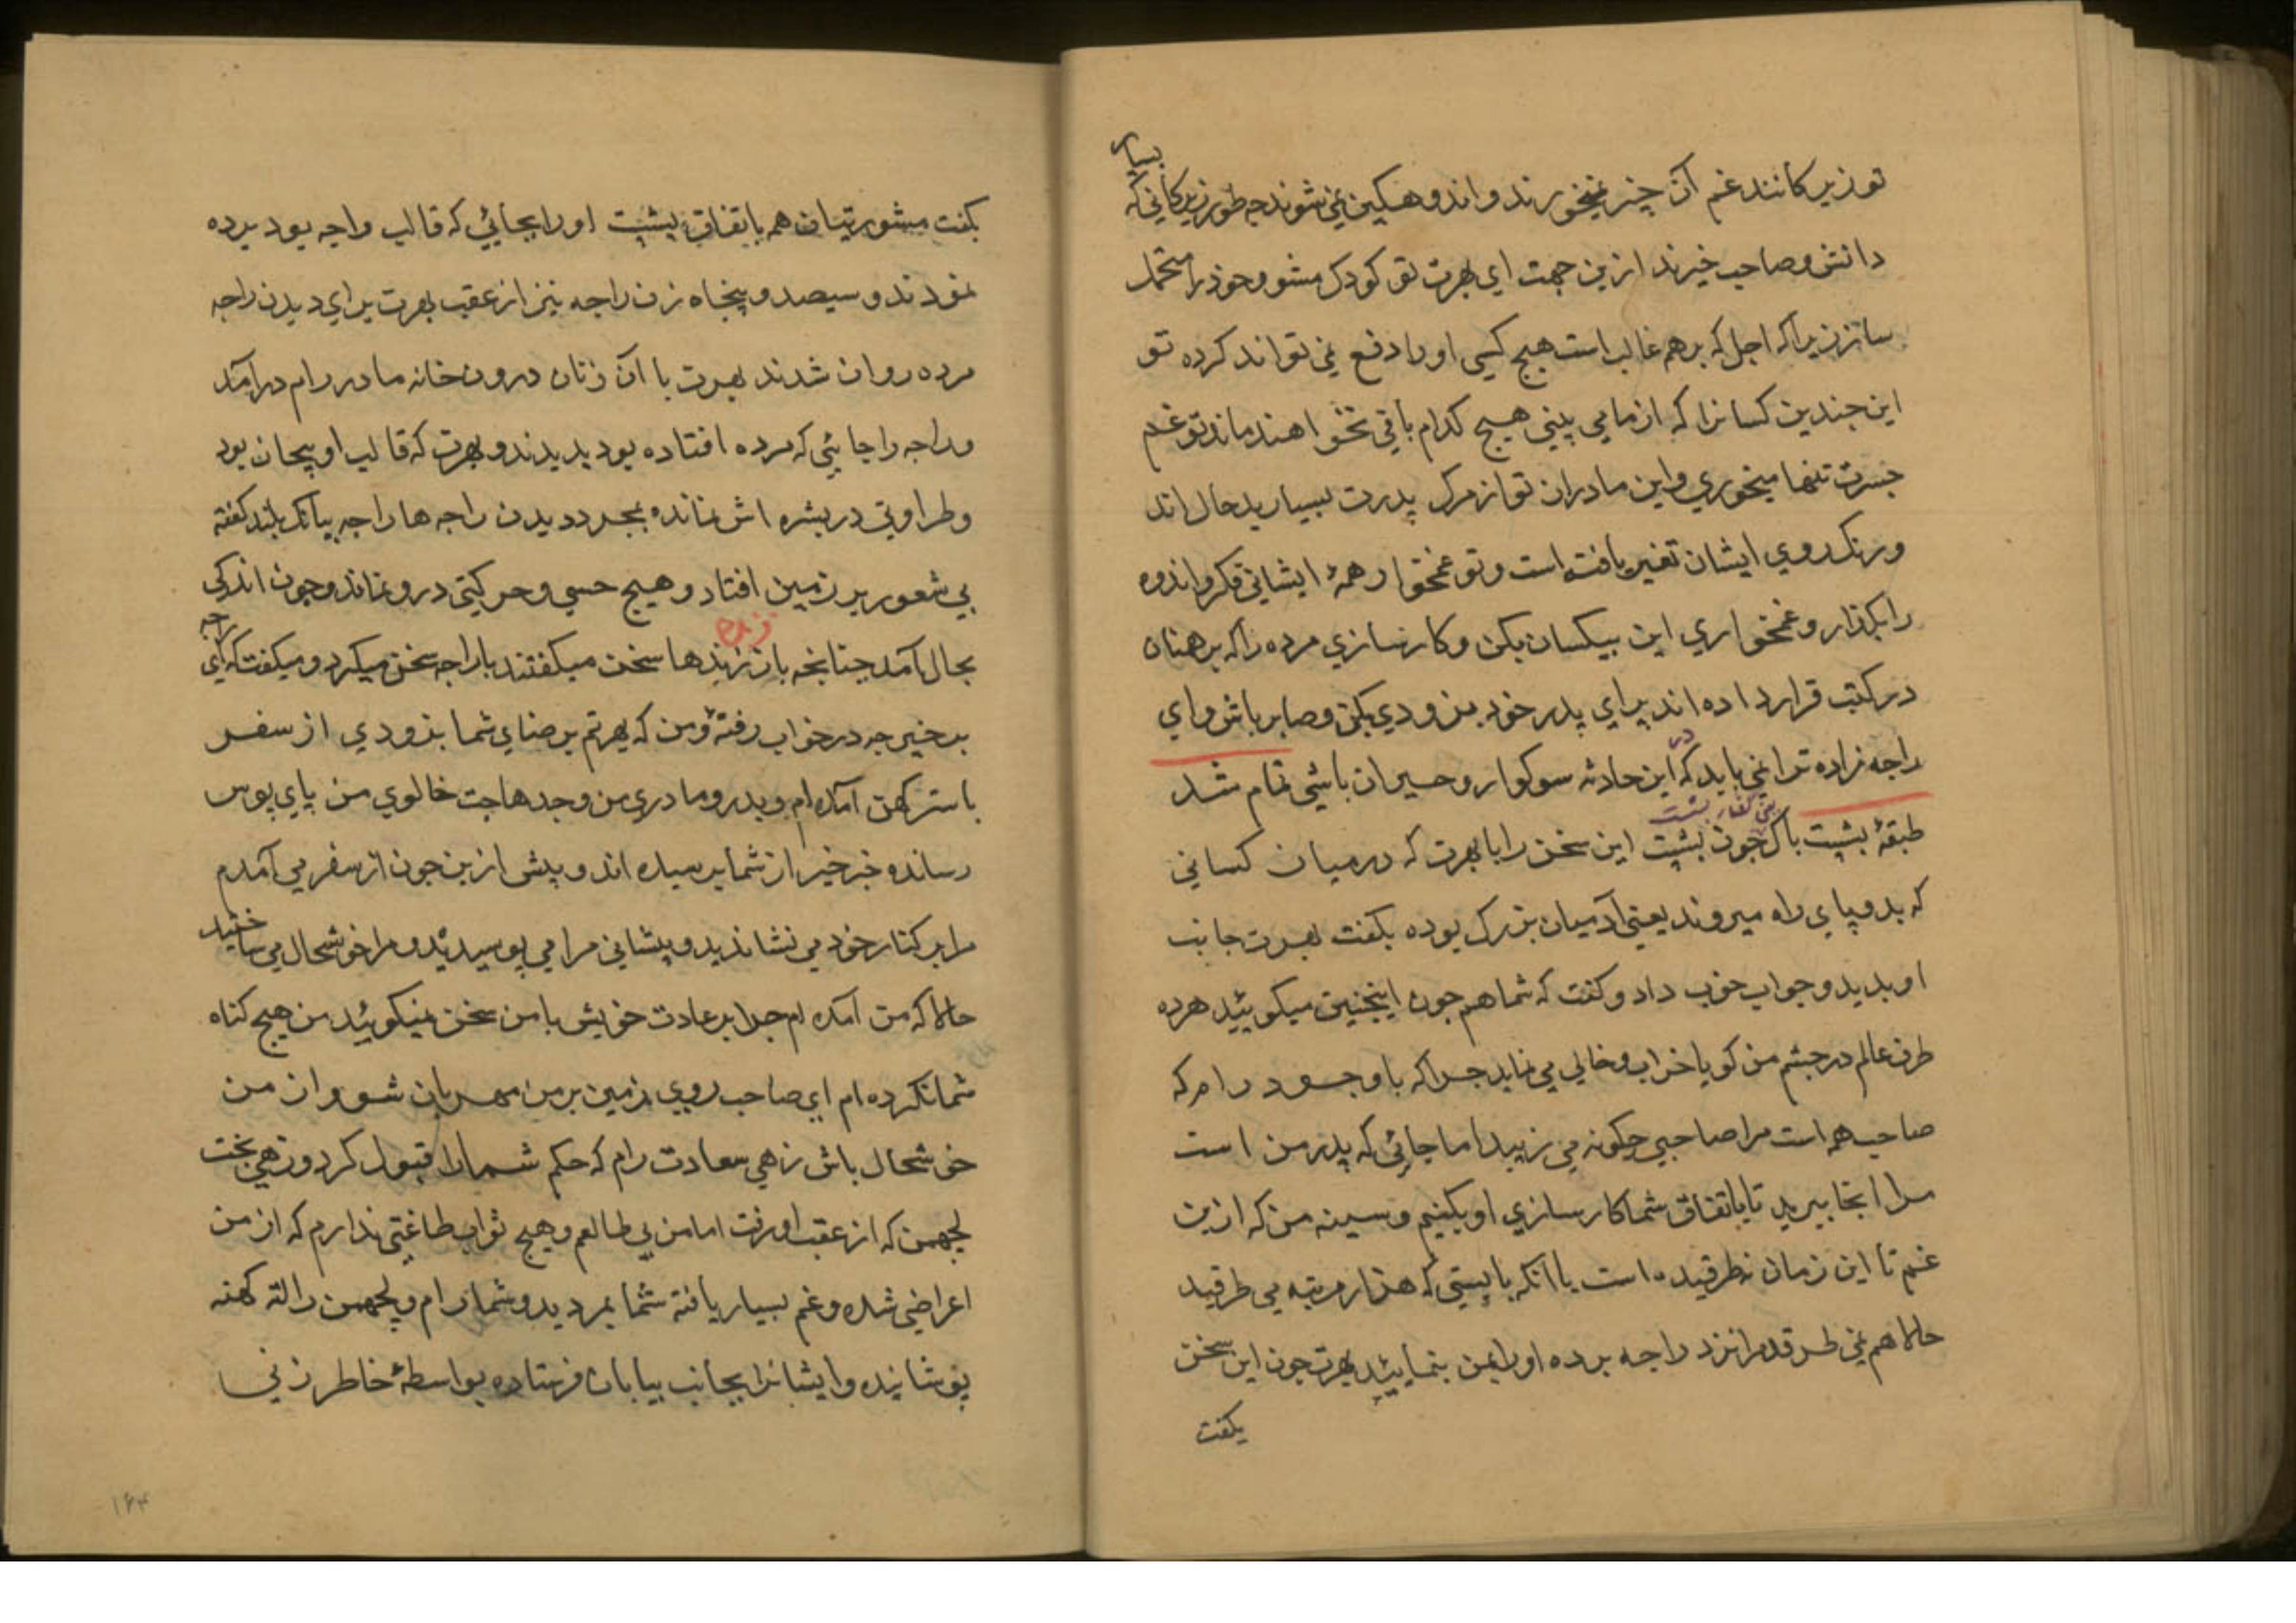 بسیار
تو زیرکانند غم آن چیز نمیخورند و اندوهکین نمی شوند چه طور زیرکانی که
دانش و صاحب خیرند ازین جهت ای بهرت تو کودک مشو و خود را متحمل
ساز زیراکه اجل که بر هم غالب است هیچ کسی اورا دفع نمی تواند کرده تو
این چندین کسانرا که از ما می بینی هیچ کدام باقی نخواهند ماند تو غم
جسرت تنها میخوری و این مادران تو از مرک پدرت بسیار بدحال اند
و رنک روی ایشان تغیر یافته است و تو غمخوار همهٔ ایشانی فکر و اندوه
را بکذار و غمخواری این بیکسان بکن و کارسازی مرده را که برهنان
در کتب قرار داده اند برای پدر خود بزودی بکن و صابر باش و ای
راجه زاده ترا نمی باید که در این حادثه سوکوار و حیران باشی تمام شد
طبقهٔ بشپت باک چون بشپت این سخن را با بهرت که درمیان کسانی
که بدو پای راه میروند یعنی آدمیان بزرک بوده بکفت بهرت جانب
او بدید و جواب خوب داد و کفت که شما هم چون اینچنین میکوییٔد هرده
طرف عالم در چشم من کویا خراب و خالی می نماید چراکه با وجود رام که
صاحب همه است مرا صاحبی چکونه می زیبد اما جائی که پدر من است
مرا آنجا ببرید تا باتفاق شما کارسازی او بکنیم و سینه من که ازین
غم تا این زمان نطرقیده است با آنکه بایستی که هزار مرتبه می طرقید
حالا هم نمی طرقد مرا نزد راجه برده اورا بمن بنماییٔد بهرت چون این سخن
بکفت
بکفت مشورتیان هم باتفاق بشپت اورا بجائی که قالب راجه بود برده
نمودند و سیصد و پنجاه زن راجه نیز از عقب بهرت برای دیدن راجه
مرده روان شدند بهرت با آن زنان درون خانه مادر رام درآمد
و راجه را جائی که مرده افتاده بود بدیدند و بهرت که قالب او بیجان بود
و طراوتی در بشره اش نمانده بمجرد دیدن راجه ها راجه ببانک بلند کفته
بی شعور بر زمین افتاد و هیچ حسی و حرکتی درو نماند و چون اندکی
بحال آمد چنانچه بان زندها سخن میکفتند با راجه سخن میکرد و میکفت که ای راجه
برخیر چه در خواب رفتهٔ و من که بهرتم برضای شما بزودی از سفر
با سترکهن آمده ام و پدر و مادری من و جد هاجت خالوی من پای بوس
رسانده خبر خیر از شما پرسیده اند و پیش ازین چون از سفر می آمدم
مرا بر کنار خود می نشاندید و پیشانی مرا می بوسیدید و مرا خوشحال می ساختید
حالا که من آمده ام چرا بر عادت خویش با من سخن نمیکوییٔد من هیچ کناه
شما نکرده ام ای صاحب روی زمین بر من مهربان شو و از من
خوشحال باش زهی سعادت رام که حکم شمارا قبول کرد و زهی بخت
لچهمن که از عقب او رفت اما من بی طالعم و هیچ ثواب طاعتی ندارم که از من
اعراضی شده و غم بسیار یافته شما بمردید و شما رام و لچهمن را لته کهنه
پوشانیده و ایشانرا بجانب بیابان فرستاده بواسطهٔ خاطر زنی
۱۶۴